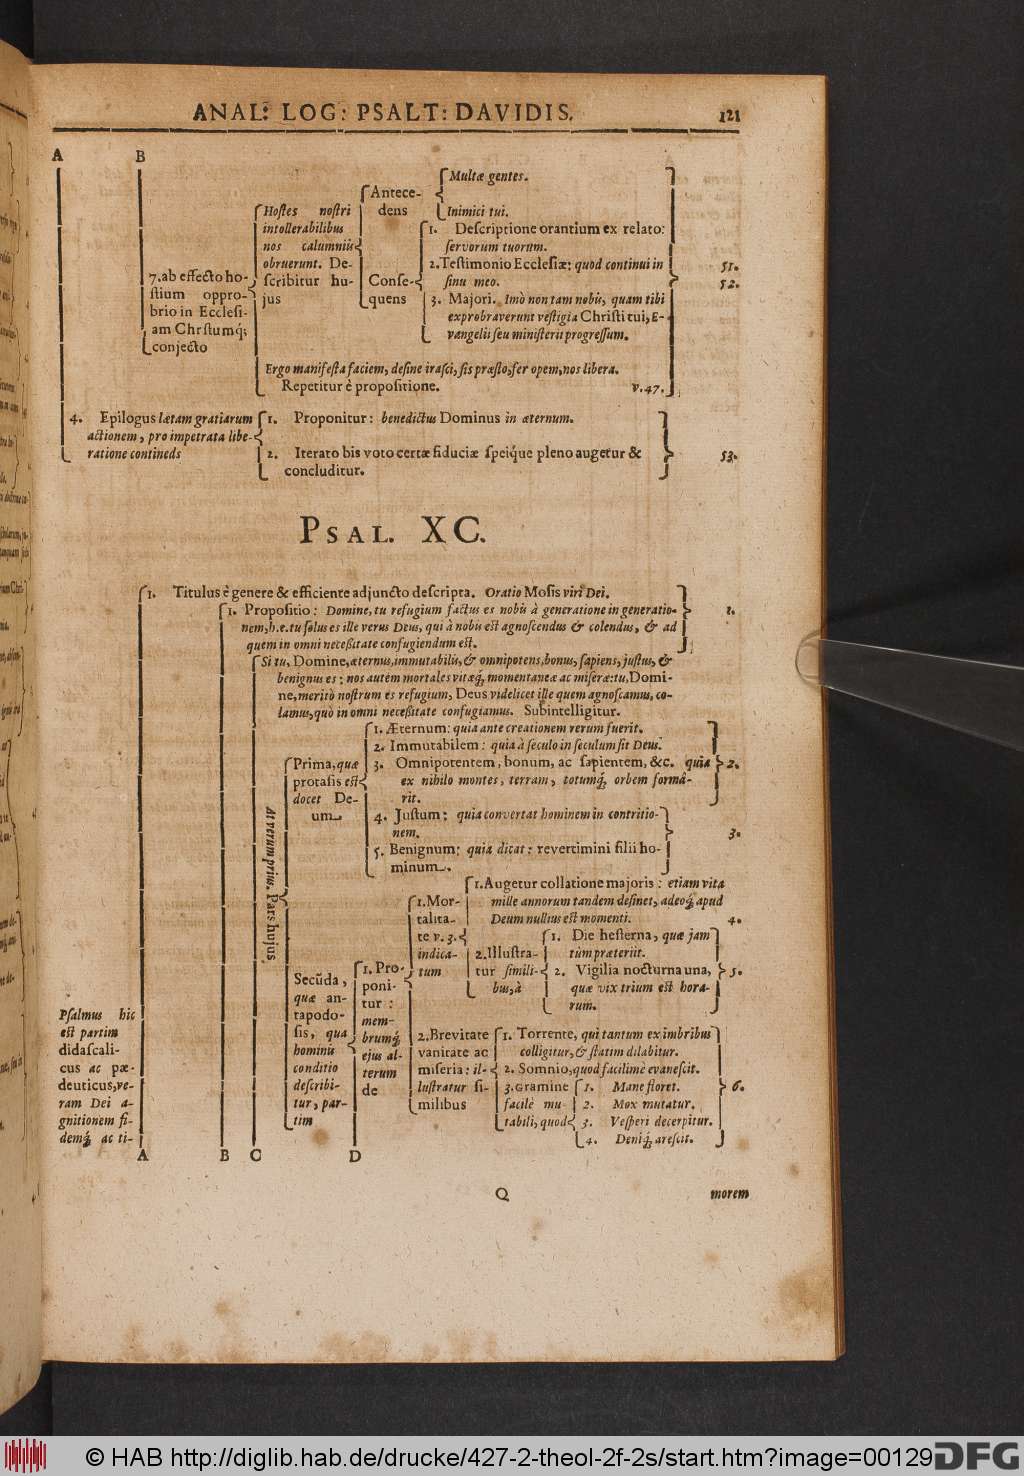 ANAL: LOG: PSALT: DAVIDIS. 121
A B
7. ab effecto ho-
stium oppro-
brio in Ecclesi-
am Chrstumq́;
conjecto
Hostes nostri
intollerabilibus
nos calumniis
obruerunt. De-
scribitur hu-
jus
Antece-
dens
Multæ gentes.
Inimici tui.
Conse-
quens
1. Descriptione orantium ex relato:
servorum tuorum.
2. Testimonio Ecclesiæ: quod continui in
sinu meo.
51.
52.
3. Majori. Imò non tam nobis, quam tibi
exprobraverunt vestigia Christi tui, E-
vangelii seu ministerii progressum.
Ergo manifesta faciem, desine irasci, sis præsto, fer opem, nos libera.
Repetitur è propositione. v. 47.
4. Epilogus lætam gratiarum
actionem, pro impetrata libe-
ratione contineds
1. Proponitur: benedictus Dominus in æternum.
2. Iterato bis voto certæ fiduciæ speiq́ue pleno augetur &
concluditur.
53.
PSAL. XC.
Psalmus hic
est partim
didascali-
cus ac pæ-
deuticus, ve-
ram Dei a-
gnitionem fi-
demq́; ac ti-
1. Titulus è genere & efficiente adjuncto descripta. Oratio Mosis viri Dei.
1. Propositio: Domine, tu refugium factus es nobis à generatione in generatio-
nem, h.e. tu solus es ille verus Deus, qui à nobis est agnoscendus & colendus, & ad
quem in omni necessitate confugiendum est.
1.
Si tu, Domine, æternus, immutabilis, & omnipotens, bonus, sapiens, justus, &
benignus es: nos autem mortales vitæq́; momentaneæ ac miseræ: tu, Domi-
ne, meritò nostrum es refugium, Deus videlicet ille quem agnoscamus, co-
lamus, quò in omni necessitate confugiamus. Subintelligitur.
At verum prius. Pars hujus
Prima, quæ
protasis est
docet De-
um
1. Æternum: quia ante creationem rerum fuerit.
2. Immutabilem: quia à seculo in seculum sit Deus.
3. Omnipotentem, bonum, ac sapientem, &c. quia
ex nihilo montes, terram, totumq́; orbem formâ-
rit.
2.
4. Justum: quia convertat hominem in contritio-
nem.
5. Benignum: quia dicat: revertimini filii ho-
minum.
3.
Secũda,
quæ an-
tapodo-
sis, qua
hominis
conditio
describi-
tur, par-
tim
1. Pro-
poni-
tur:
mem-
brumq́;
ejus al-
terum
de
1. Mor-
talita-
te v. 3.
indica-
tum
1. Augetur collatione majoris: etiam vita
mille annorum tandem desinet, adeoq́; apud
Deum nullius est momenti.
4.
2. Illustra-
tur simili-
bus, à
1. Die hesterna, quæ jam
tùm præteriit.
2. Vigilia nocturna una,
quæ vix trium est hora-
rum.
5.
2. Brevitate
vanitate ac
miseria: il-
lustratur si-
milibus
1. Torrente, qui tantum ex imbribus
colligitur, & statim dilabitur.
2. Somnio, quod facilimè evanescit.
3. Gramine
facilè mu-
tabili, quod
1. Mane floret.
2. Mox mutatur.
3. Vesperi decerpitur.
4. Deniq́; arescit.
6.
A B C D
Q morem
© HAB http://diglib.hab.de/drucke/427-2-theol-2f-2s/start.htm?image=00129
DFG